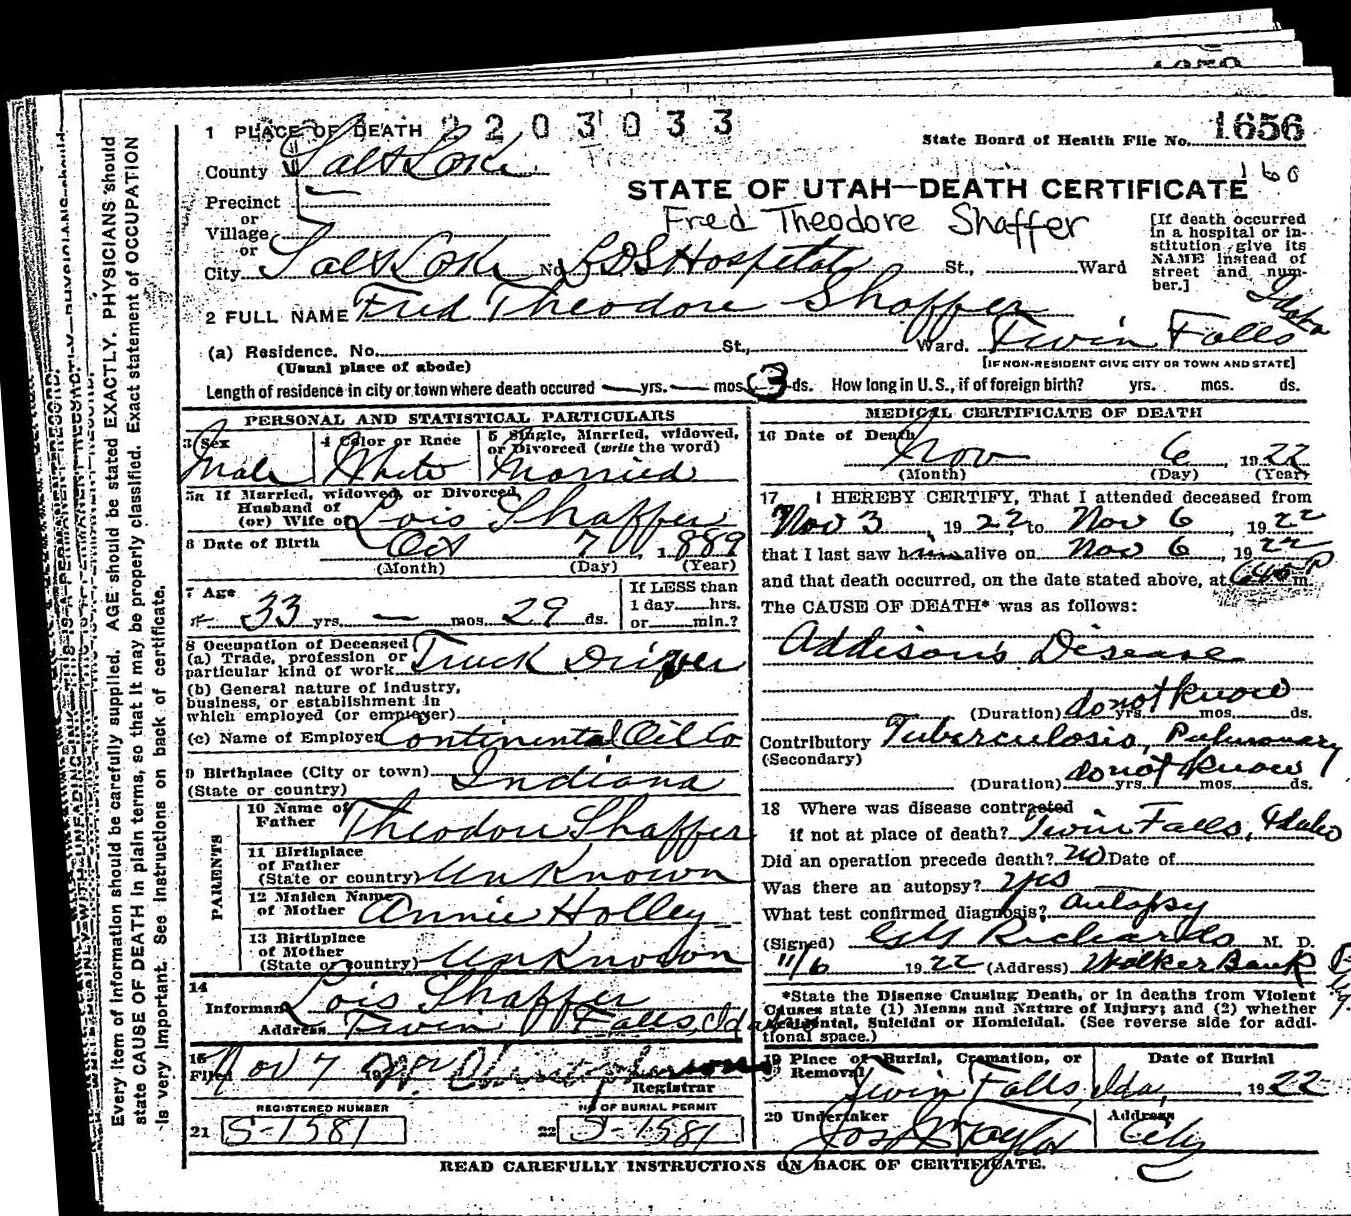 1 PLACE OF DEATH 2203033
State Board of Health File No. 1656
County Salt Lake
160
STATE OF UTAH—DEATH CERTIFICATE
Fred Theodore Shaffer
Precinct
or
Village
or
City Salt Lake No. LDS Hospital St., Ward
[If death occurred
in a hospital or in-
stitution give its
NAME instead of
street and num-
ber.]
2 FULL NAME Fred Theodore Shaffer
(a) Residence. No. St., Ward. Twin Falls Idaho
(Usual place of abode)
[IF NON-RESIDENT GIVE CITY OR TOWN AND STATE]
Length of residence in city or town where death occured — yrs. — mos. 3 ds. How long in U. S., if of foreign birth? yrs. mcs. ds.
PERSONAL AND STATISTICAL PARTICULARS
3 Sex
Male
4 Color or Race
White
5 Single, Married, widowed,
or Divorced (write the word)
Married
5a If Married, widowed, or Divorced,
Husband of
(or) Wife of Lois Shaffer
6 Date of Birth Oct 7, 1889
(Month) (Day) (Year)
7 Age
33 yrs. — mos. 29 ds.
If LESS than
1 day hrs.
or min.?
8 Occupation of Deceased
(a) Trade, profession or
particular kind of work Truck Driver
(b) General nature of industry,
business, or establishment in
which employed (or employer)
(c) Name of Employer Continental Oil Co
9 Birthplace (City or town)
(State or country) Indiana
PARENTS
10 Name of
Father Theodore Shaffer
11 Birthplace
of Father
(State or country) Unknown
12 Maiden Name
of Mother Annie Holley
13 Birthplace
of Mother
(State or country) Unknown
14
Informant Lois Shaffer
Address Twin Falls, Idaho
15
Filed Nov 7 19 Registrar
REGISTERED NUMBER
21 S-1581
NO OF BURIAL PERMIT
22 S-1581
MEDICAL CERTIFICATE OF DEATH
16 Date of Death
Nov 6, 1922
(Month) (Day) (Year)
17 I HEREBY CERTIFY, That I attended deceased from
Nov 3, 1922 to Nov 6, 1922
that I last saw him alive on Nov 6, 1922
and that death occurred, on the date stated above, at 645 P m.
The CAUSE OF DEATH* was as follows:
Addison's Disease
(Duration) do not know yrs. mos. ds.
Contributory Tuberculosis, Pulmonary
(Secondary)
(Duration) do not know yrs. mos. ds.
18 Where was disease contracted
if not at place of death? Twin Falls, Idaho
Did an operation precede death? no Date of
Was there an autopsy? yes
What test confirmed diagnosis? autopsy
(Signed) Richards M. D.
11/6 1922 (Address) Walker Bank
*State the Disease Causing Death, or in deaths from Violent
Causes state (1) Means and Nature of Injury; and (2) whether
Accidental, Suicidal or Homicidal. (See reverse side for addi-
tional space.)
19 Place of Burial, Cremation, or
Removal
Twin Falls, Ida,
Date of Burial
1922
20 Undertaker
Jos Wm Taylor
Address
City
READ CAREFULLY INSTRUCTIONS ON BACK OF CERTIFICATE.
Every item of information should be carefully supplied. AGE should be stated EXACTLY. PHYSICIANS should
state CAUSE OF DEATH in plain terms, so that it may be properly classified. Exact statement of OCCUPATION
is very important. See instructions on back of certificate.